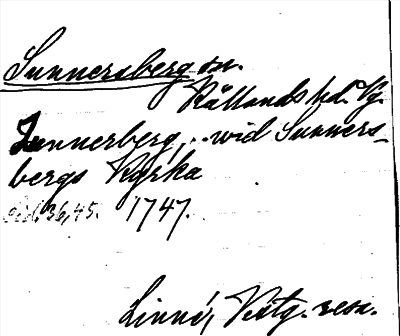 Sunnersberg sn.
Kållands hd. Vg.
Sunnerberg, .. wid Sunners-
bergs Kyrka
sid. 36, 45. 1747.
Linné, Västg. resa.